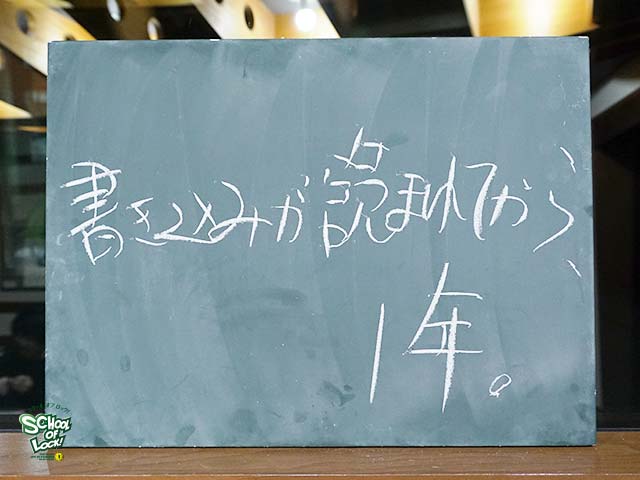 書き込みが読まれてから、
1年。
SCHOOL
OF
LOCK!